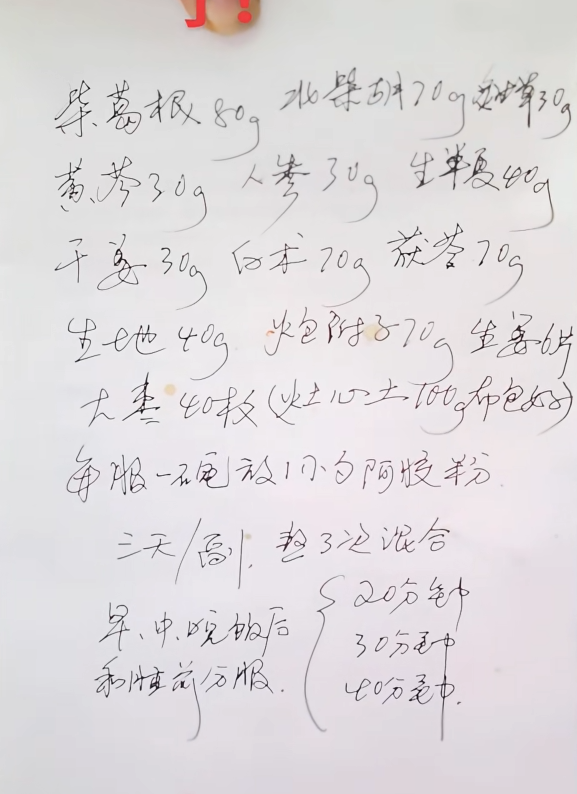 了！
柴葛根80g 北柴胡70g 草30g
黄芩30g 人参30g 生半夏40g
干姜30g 白术70g 茯苓70g
生地40g 炮附子70g 生姜6片
大枣40枚(灶心土100g布包好)
每服一碗放1小勺阿胶粉
三天/副，熬3次混合
早、中、晚饭后
和睡前分服.
20分钟
30分钟
40分钟.